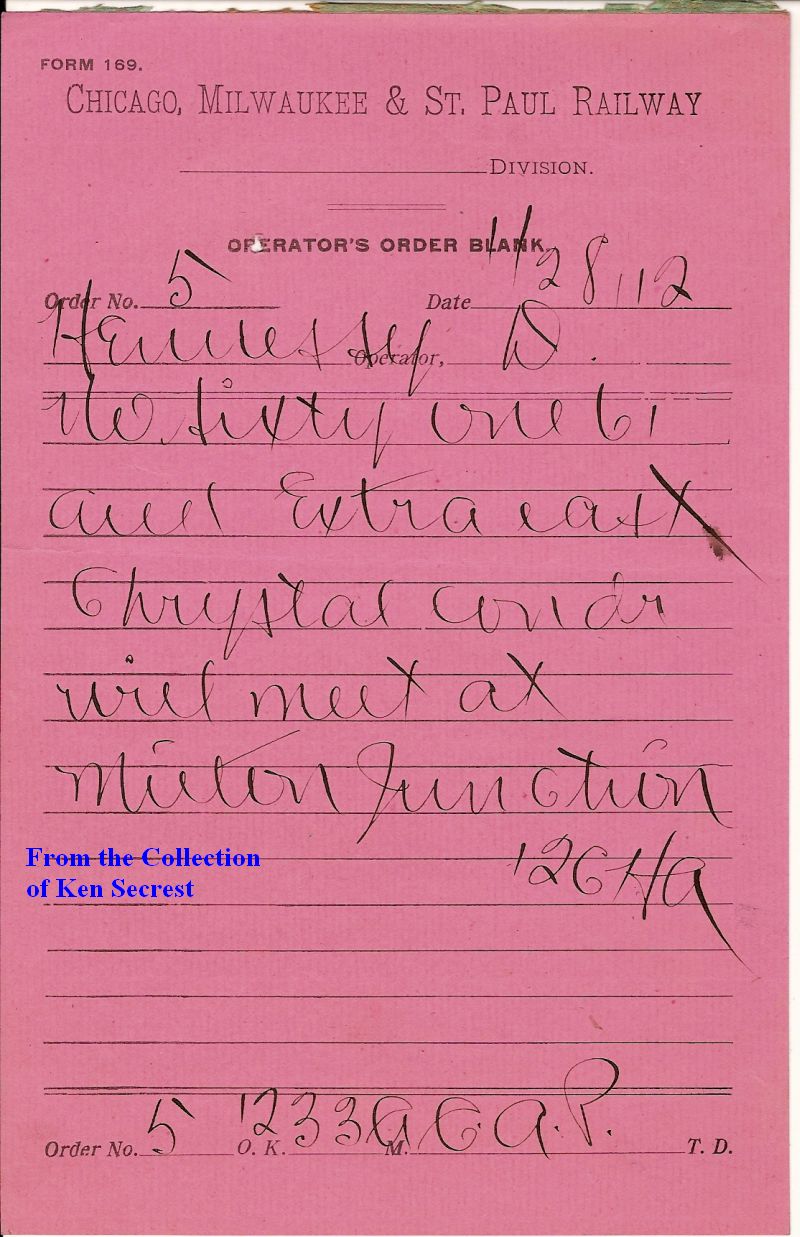 FORM 169.
CHICAGO, MILWAUKEE & ST. PAUL RAILWAY
DIVISION.
OPERATOR'S ORDER BLANK.
Order No. 5 Date 11/28/12
Hennessy Operator, D.
No. Sixty one 61
and Extra east
Chrystal condr
will meet at
Milton Junction
From the Collection
of Ken Secrest
Order No. 5 O. K. 1233 A M. C. A. P. T. D.